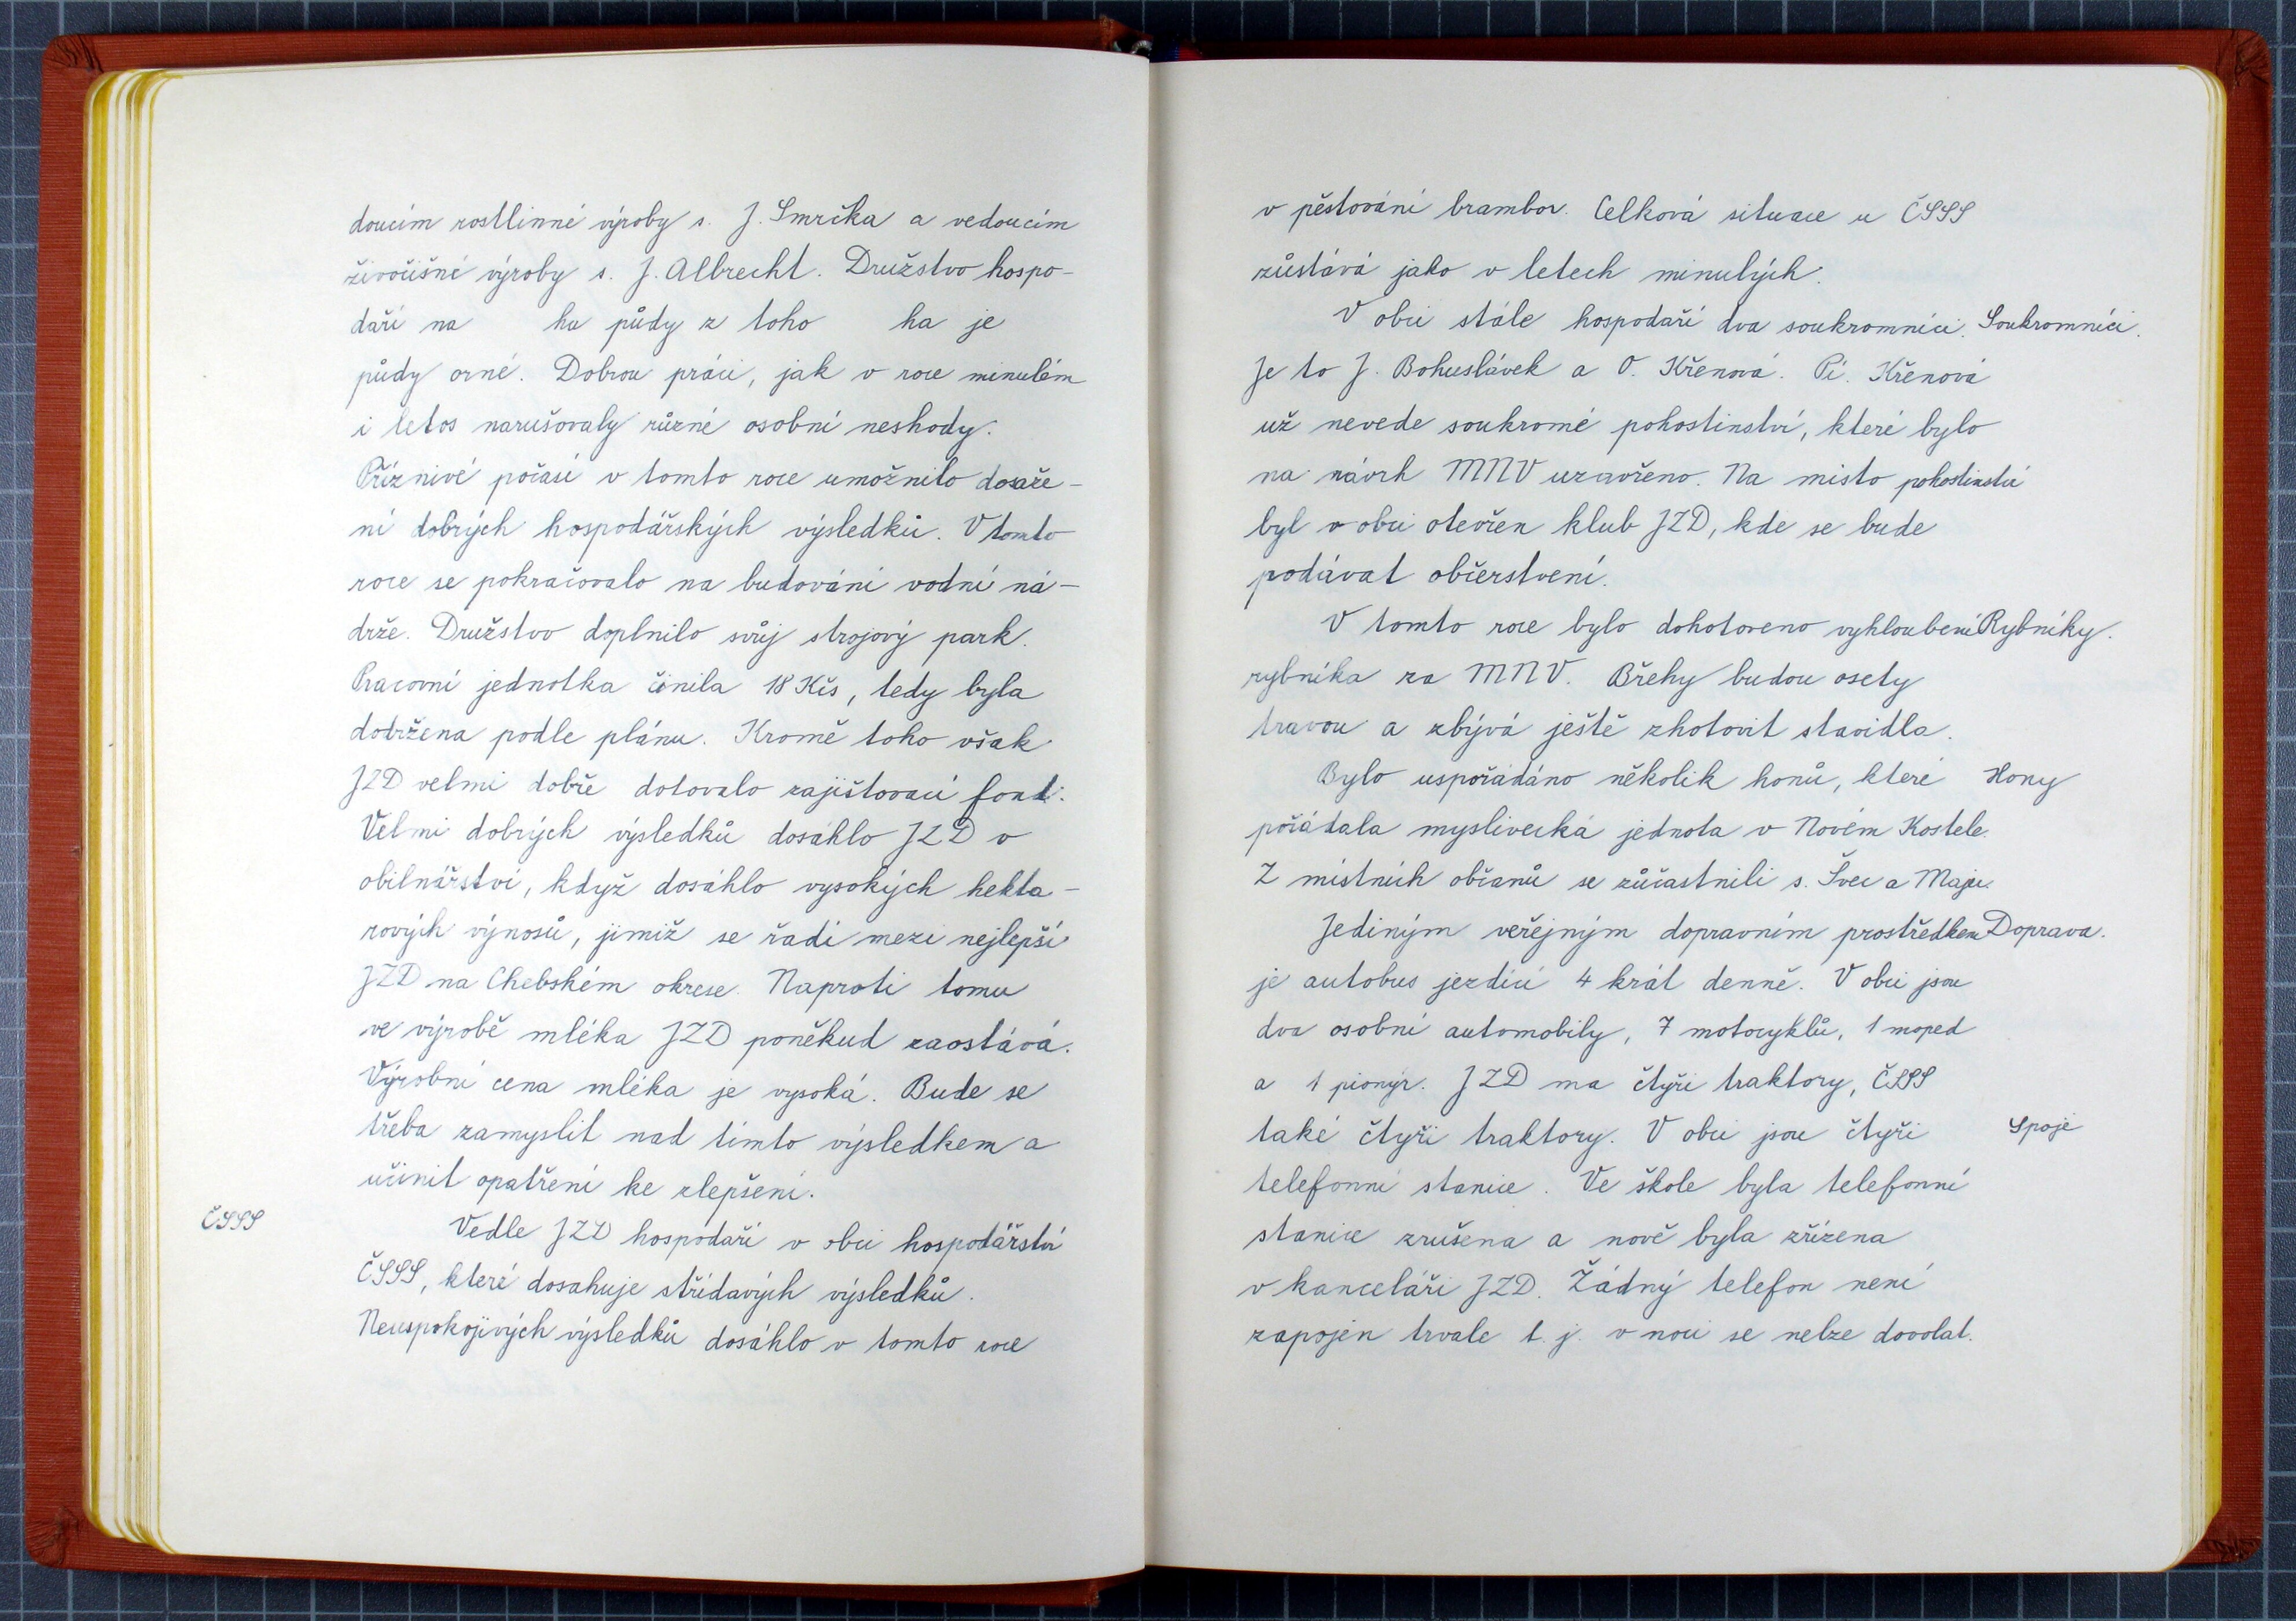 doucím rostlinné výroby s. J. Smrčka a vedoucím
živočišné výroby s. J. Albrecht. Družstvo hospo-
daří na ha půdy z toho ha je
půdy orné. Dobrou práci, jak v roce minulém
i letos narušovaly různé osobní neshody.
Příznivé počasí v tomto roce umožnilo dosaže-
ní dobrých hospodářských výsledků. V tomto
roce se pokračovalo na budování vodní ná-
drže. Družstvo doplnilo svůj strojový park.
Pracovní jednotka činila 18 Kčs, tedy byla
dodržena podle plánu. Kromě toho však
JZD velmi dobře dotovalo zajišťovací fond.
Velmi dobrých výsledků dosáhlo JZD v
obilnářství, když dosáhlo vysokých hekta-
rových výnosů, jimiž se řadí mezi nejlepší
JZD na Chebském okrese. Naproti tomu
ve výrobě mléka JZD poněkud zaostává.
Výrobní cena mléka je vysoká. Bude se
třeba zamyslit nad tímto výsledkem a
učinit opatření ke zlepšení.
ČSSS
Vedle JZD hospodaří v obci hospodářství
ČSSS, které dosahuje střídavých výsledků.
Neuspokojivých výsledků dosáhlo v tomto roce
v pěstování brambor. Celková situace u ČSSS
zůstává jako v letech minulých.
V obci stále hospodaří dva soukromníci. Soukromníci.
Je to J. Bohuslávek a O. Křenová. Pí. Křenová
už nevede soukromé pohostinství, které bylo
na návrh MNV uzavřeno. Na místo pohostinství
byl v obci otevřen klub JZD, kde se bude
podávat občerstvení.
V tomto roce bylo dohotoveno vyhloubení Rybníky.
rybníka za MNV. Břehy budou osety
travou a zbývá ještě zhotovit stavidla.
Bylo uspořádáno několik honů, které Hony
pořádala myslivecká jednota v Novém Kostele.
Z místních občanů se zůčastnili s. Švec a
Jediným veřejným dopravním prostředkem Doprava.
je autobus jezdící 4 krát denně. V obci jsou
dva osobní automobily, 7 motocyklů, 1 moped
a 1 pionýr. JZD ma čtyři traktory, ČSSS
také čtyři traktory. V obci jsou čtyři Spoje
telefonní stanice. Ve škole byla telefonní
stanice zrušena a nově byla zřízena
v kanceláři JZD. Žádný telefon není
zapojen trvale t. j. v noci se nelze dovolat.